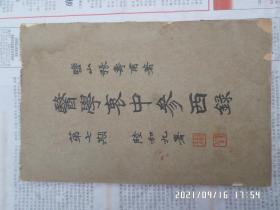 鹽山張壽甫著
醫學衷中參西錄
第七期
陸和九署
2021/09/16 17:59